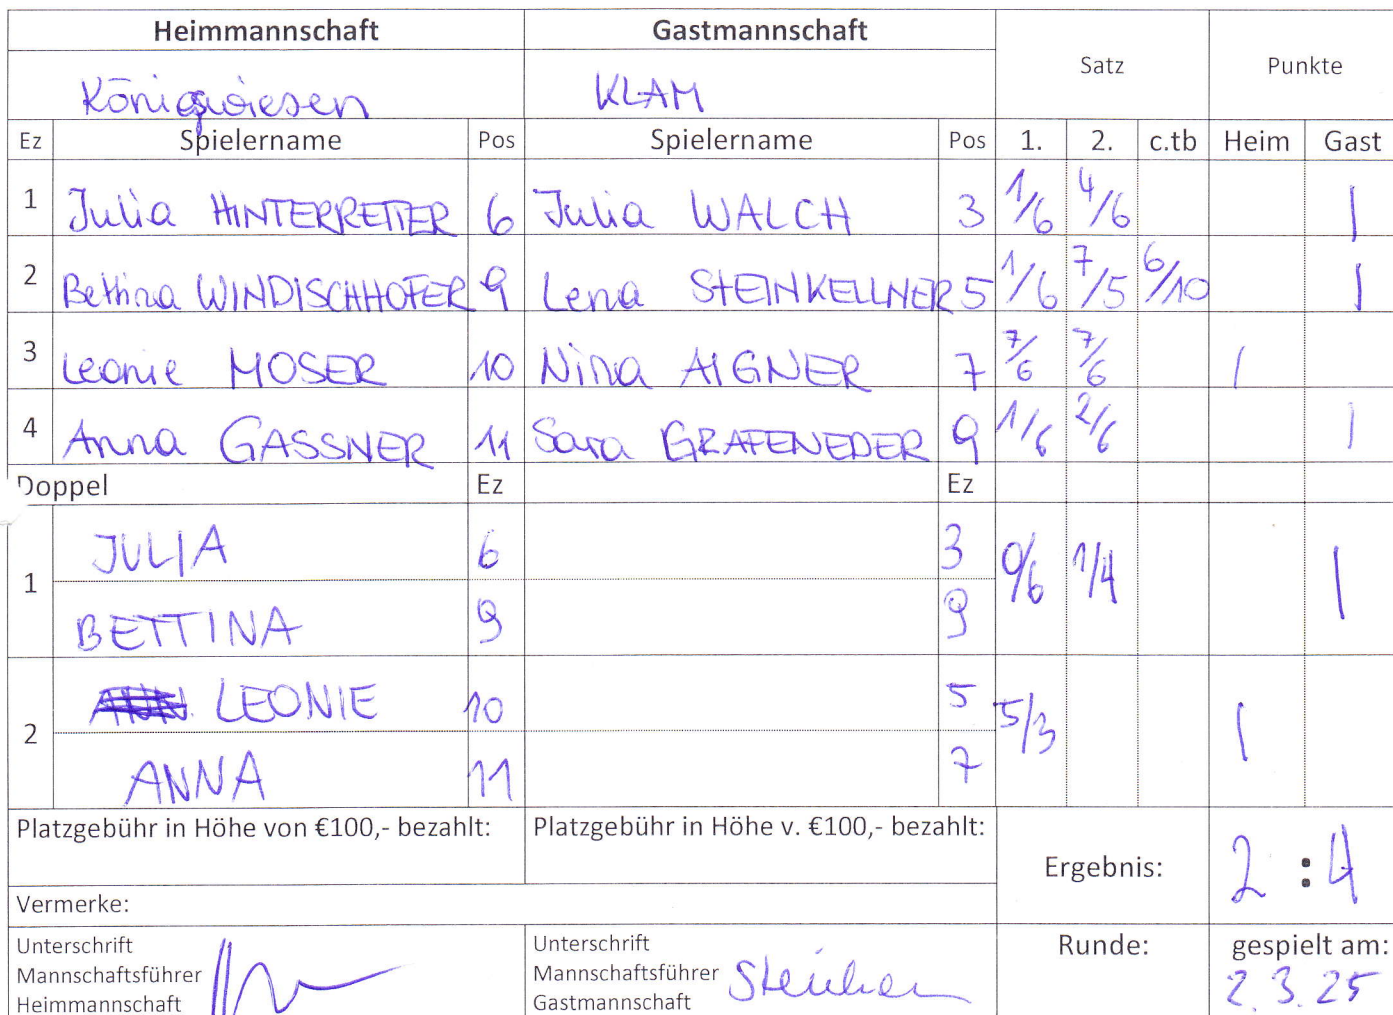 Heimmannschaft Gastmannschaft Satz Punkte
Königswiesen KLAM
Ez Spielername Pos Spielername Pos 1. 2. c.tb Heim Gast
1 Julia HINTERREITER 6 Julia WALCH 3 1/6 4/6 |
2 Bettina WINDISCHHOFER 9 Lena STEINKELLNER 5 1/6 7/5 6/10 |
3 Leonie MOSER 10 Nina AIGNER 7 7/6 7/6 |
4 Anna GASSNER 11 Sara GRAFENEDER 9 1/6 2/6 |
Doppel Ez Ez
1 JULIA 6 3 0/6 1/4 |
BETTINA 9 9
2 LEONIE 10 5 5/3 |
ANNA 11 7
Platzgebühr in Höhe von €100,- bezahlt: Platzgebühr in Höhe v. €100,- bezahlt:
Ergebnis: 2 : 4
Vermerke:
Unterschrift Unterschrift Runde: gespielt am:
Mannschaftsführer Mannschaftsführer 2.3.25
Heimmannschaft Gastmannschaft